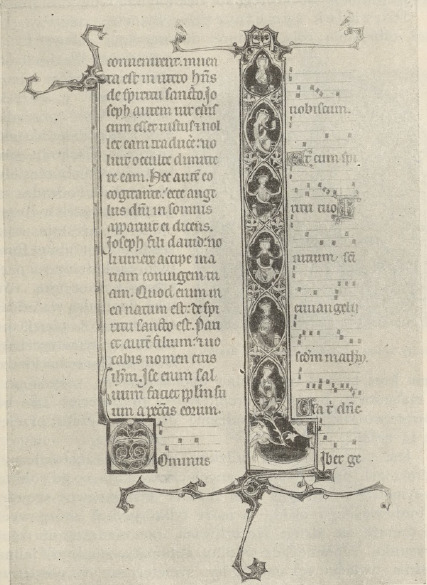 convenirent. inuen
ta est in utero hñs
de spiritu sancto. Jo
seph autem uir eius
cum esset iustus ⁊ nol
let eam traduce: uo
luit occulte dimitte
re eam. Hec autē eo
cogitante: ecce ange
lus dñi in somnis
apparuit ei dicens.
Joseph fili dauid: no
li timere accipe ma
riam coniugem tu
am. Quod enim in
ea natum est: de spi
ritu sancto est. Pari
et autē filium: ⁊ uo
cabis nomen eius
ihm. Ipse enim sal
uum faciet pplm su
um a peccis eorum.
Ominus
uobiscum.
Et cum spi
ritu tuo
nitium sc̄i
euuangelij
scdm
Gla t̄ dñe
Liber ge